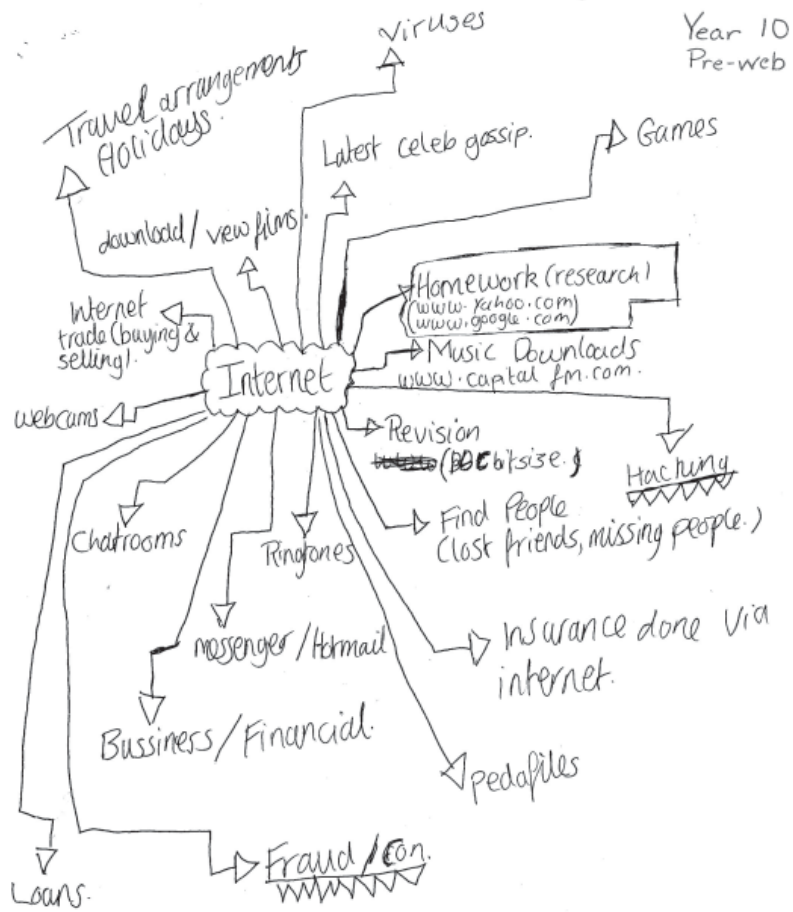 Year 10
Pre-web
Viruses
Travel arrangements
Holidays.
Latest celeb gossip.
Games
download/ view films.
Homework (research)
(www.yahoo.com)
(www.google.com)
Internet
trade (buying &
selling).
Music Downloads
www.capital fm.com.
Internet
webcams
Revision
(BBC bitsize.)
Hacking
Chatrooms
Ringtones
Find People
(lost friends, missing people.)
messenger/Hotmail
Insurance done via
internet.
Bussiness/Financial.
pedafiles
Fraud/Con.
Loans.